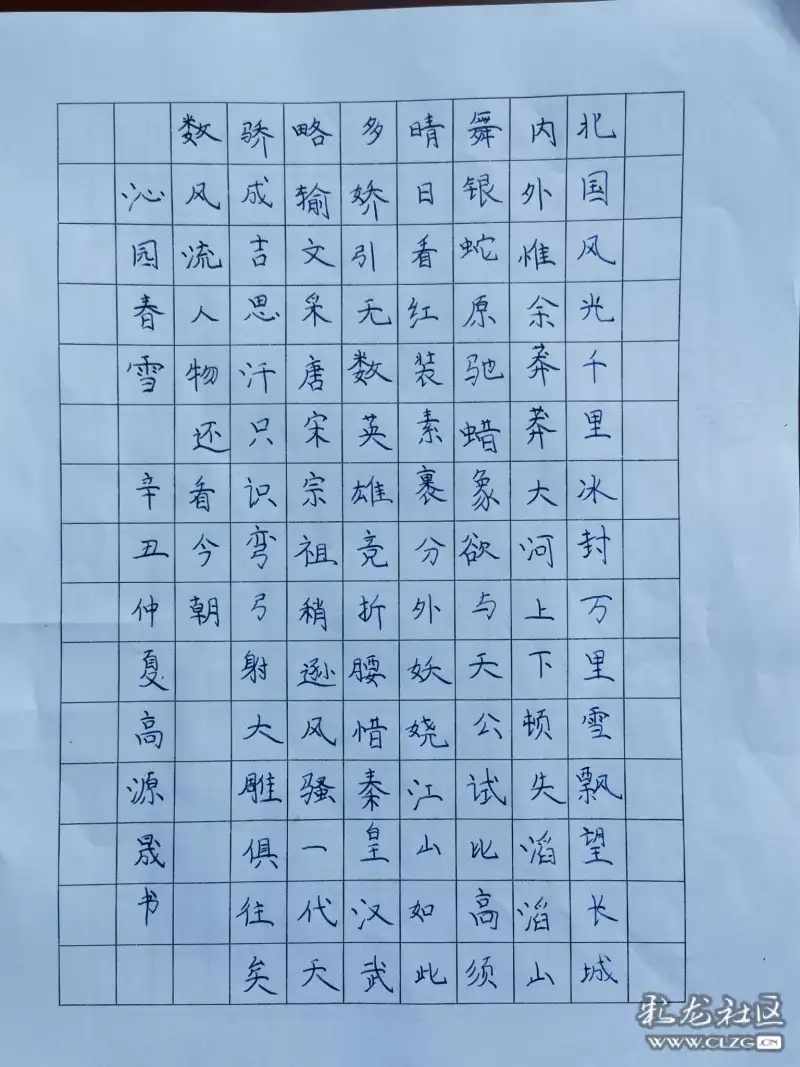 北国风光千里冰封万里雪飘望长城
内外惟余莽莽大河上下顿失滔滔山
舞银蛇原驰蜡象欲与天公试比高须
晴日看红装素裹分外妖娆江山如此
多娇引无数英雄竞折腰惜秦皇汉武
略输文采唐宋宗祖稍逊风骚一代天
骄成吉思汗只识弯弓射大雕俱往矣
数风流人物还看今朝
沁园春雪 辛丑仲夏高源晟书
彩龙社区
WWW.CLZG.CN